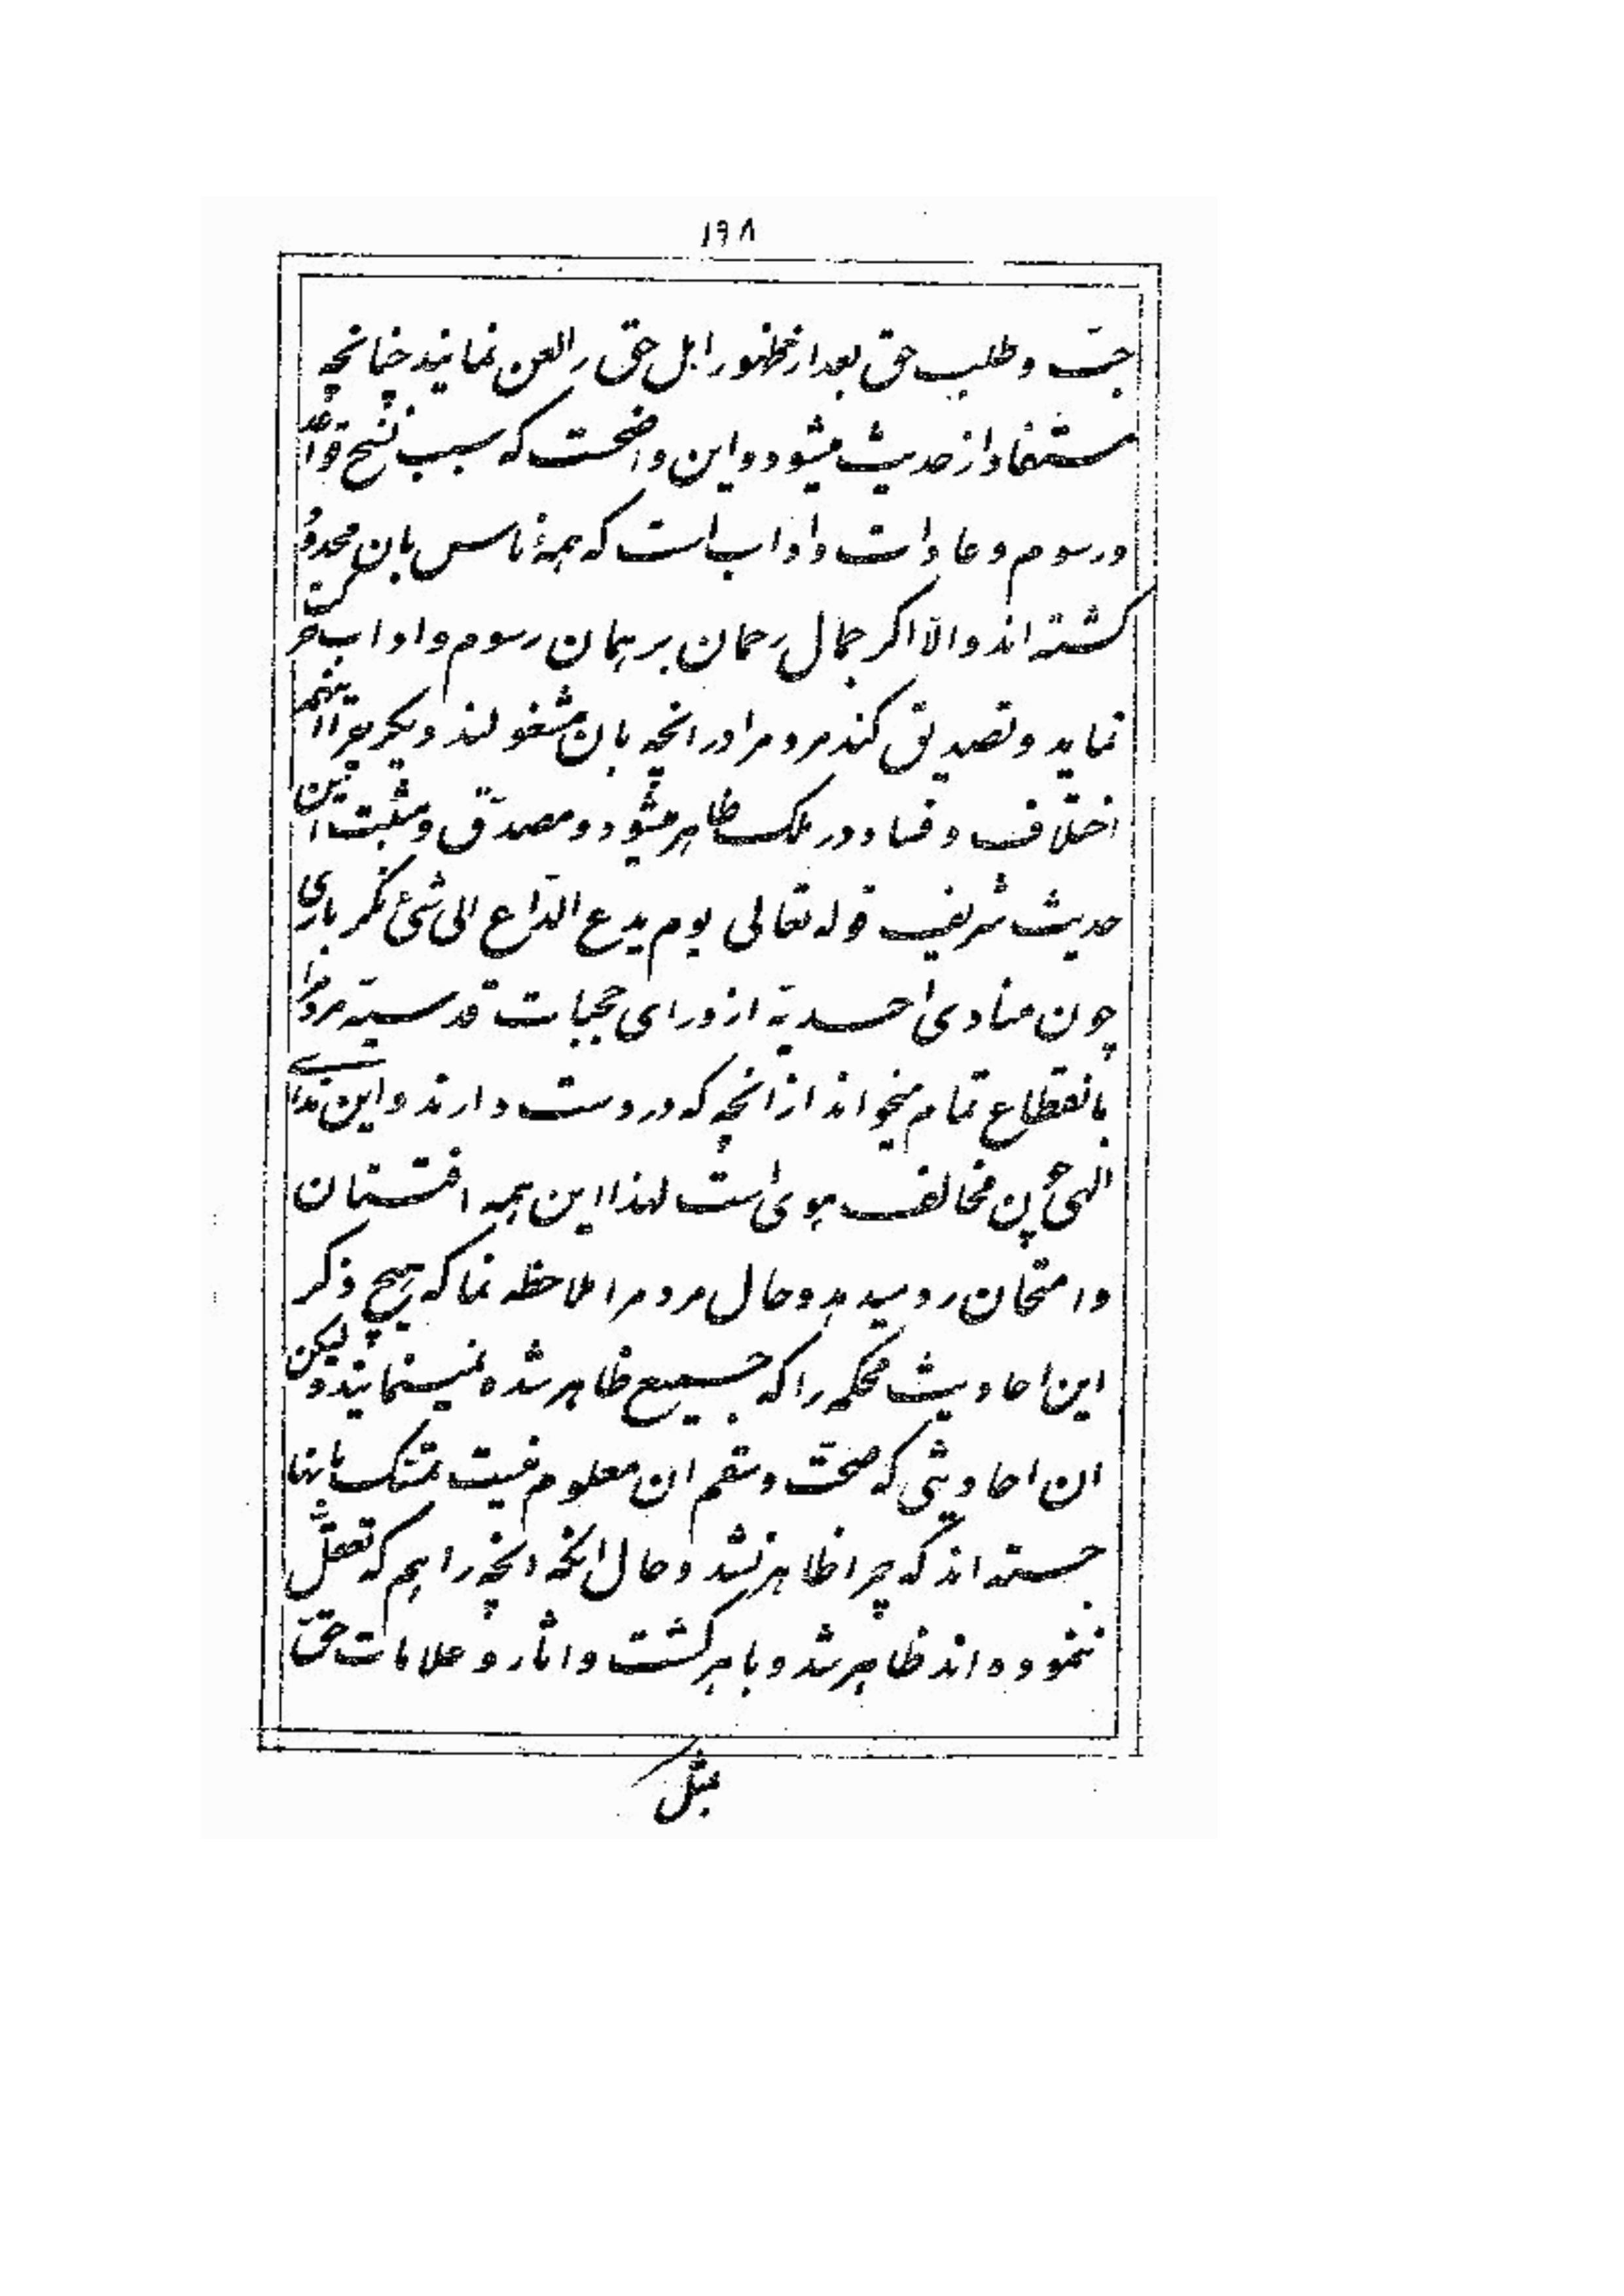 ١٩٨
حبّ و طلب حق بعد از ظهور اهل حق را لعن نمایند چنانچه
مستفاد از حدیث میشود و این واضحست که سبب نسخ قواعد
و رسوم و عادات و اداب است که همهٔ ناس بان محدود
کشته اند و الّا اکر جمال رحمان بر همان رسوم و اداب حرکت
نماید و تصدیق کند مردم را در انچه بان مشغولند دیکر چرا اینهمه
اختلاف و فساد در ملک ظاهر میشود و مصدّق و مثبت این
حدیث شریف قوله تعالی یوم یدع الدّاع الی شئ نکر باری
چون منادی احدیّه از ورای حجبات قدسیّه مردم را
بانقطاع تمام میخواند از انچه که در دست دارند و این ندای
الهی چون مخالف هوی است لهذا این همه افتتان
و امتحان رو میدهد و حال مردم را ملاحظه نما که هیچ ذکر
این احادیث محکمه را که جمیع ظاهر شده نمینمایند ولیکن
ان احادیثی که صحّت و سقم ان معلوم نیست تمسّک بانها
جسته اند که چرا ظاهر نشد و حال انکه انچه را هم که تعقّل
ننموده اند ظاهر شد و باهر کشت و اثار و علامات حقّ
بمثل